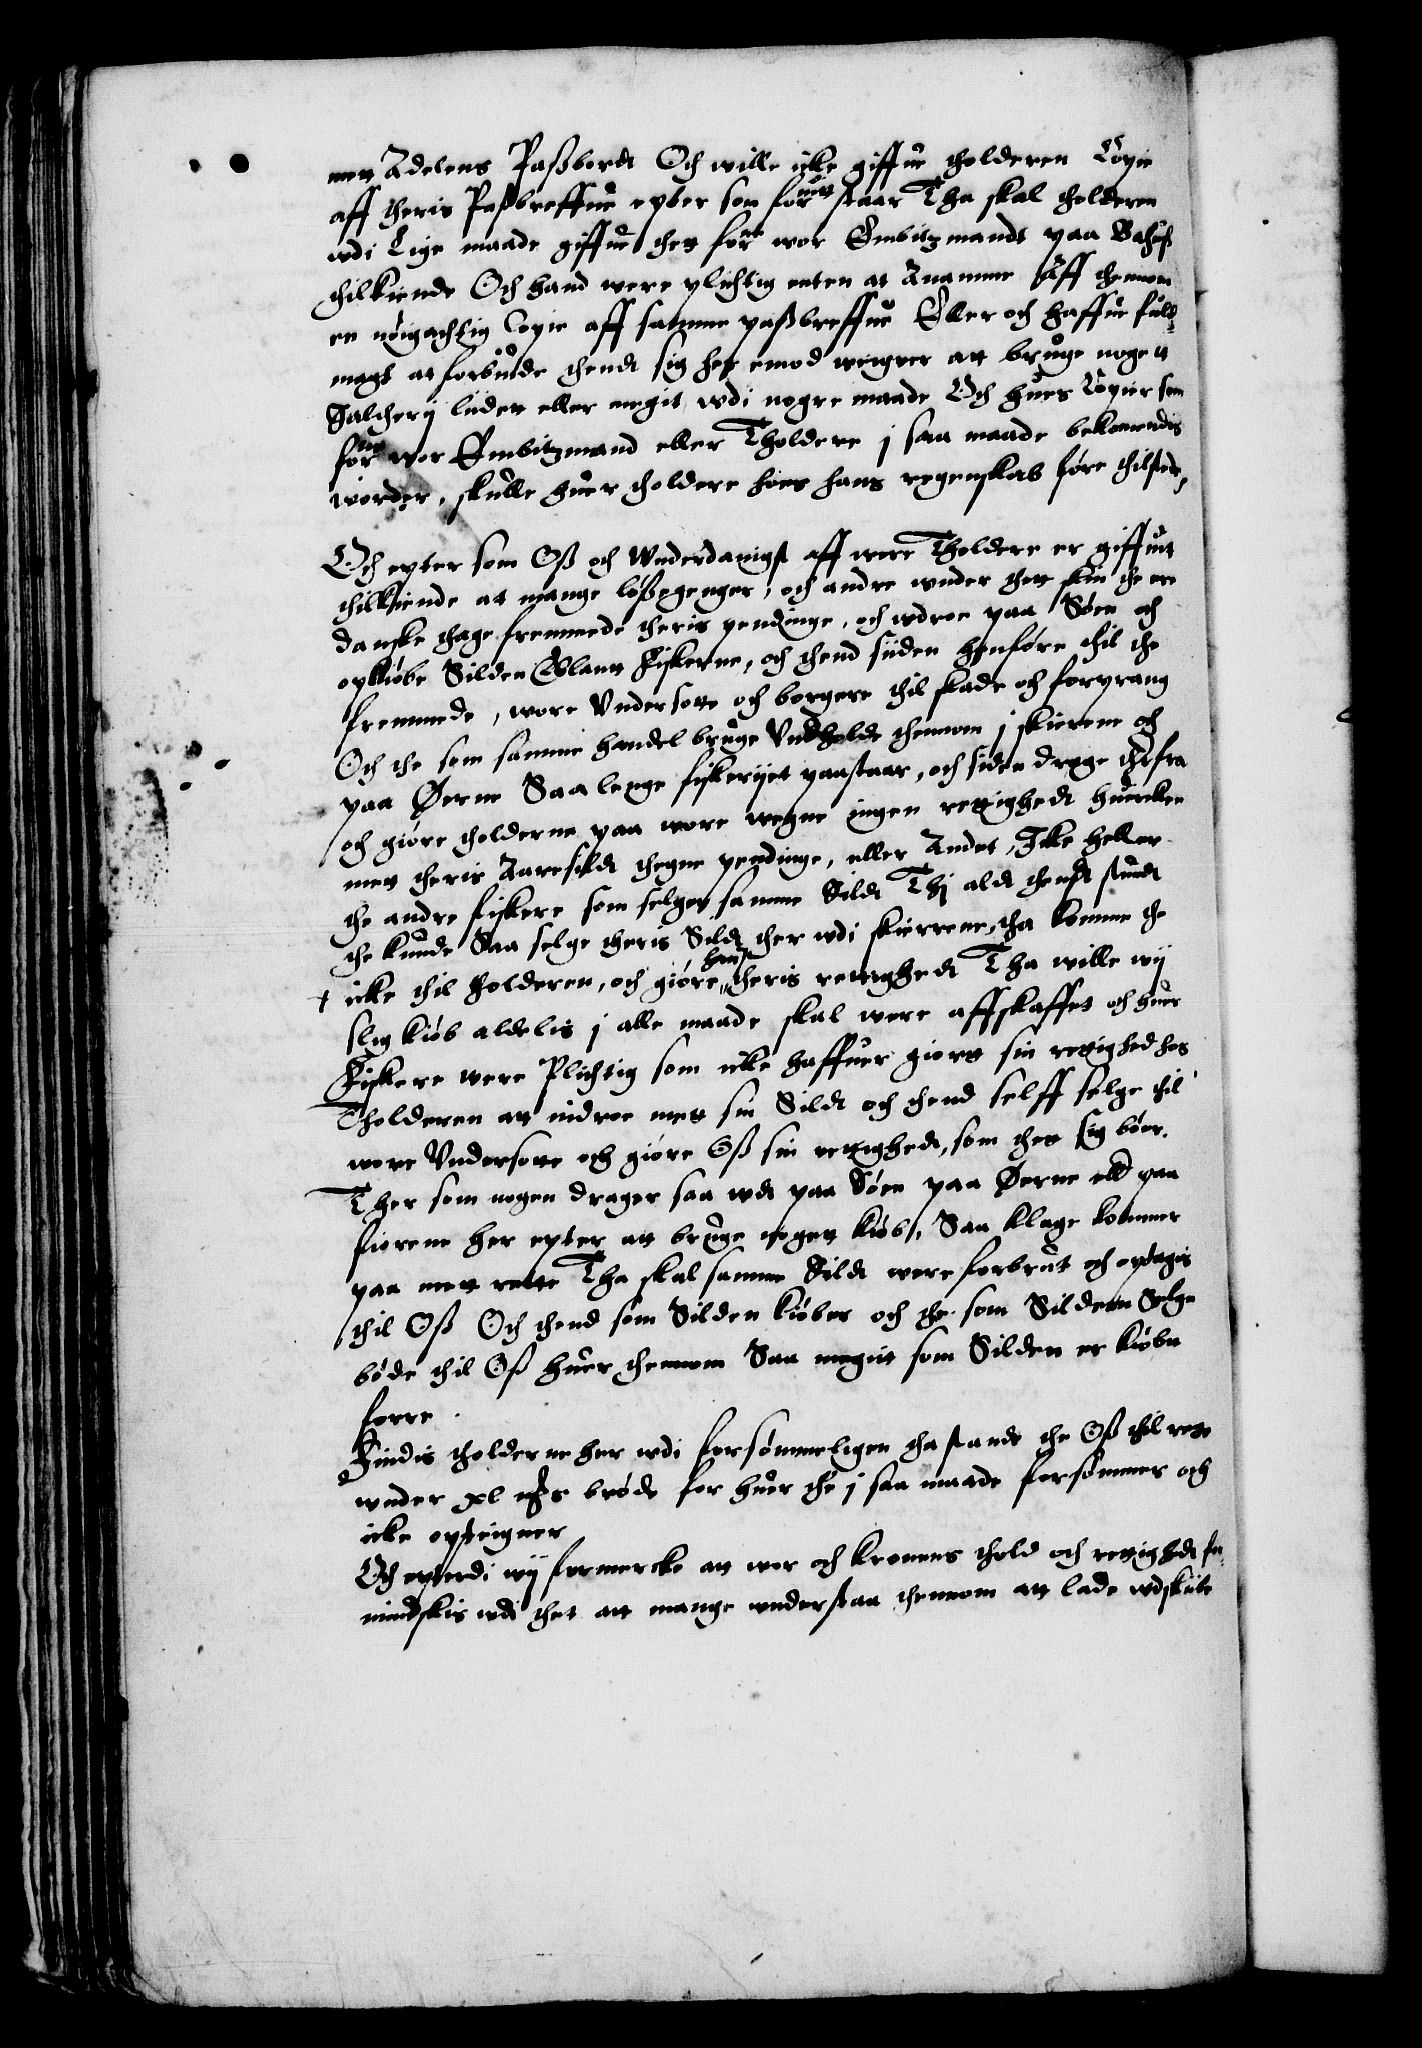 mett Adelens Passbordt Och wille icke giffue tholderen Copie
aff theris Passbreffue epter som forne staar Tha skal tholderen
wdi Lige maade giffue thet forne wor Embitzmandt paa Bahuss
thilkiende Och hand were plichtig enten at Anamme Aff thennom
en nöigachtig Copie aff samme passbreffue Eller och haffue fuld
magt at forbiude thendt sig her emod weigrer att bruge nogett
Saltherij liden eller megit wdi nogre maade Och hues Copier som
forne wor Embitzmand eller Tholdere j saa maade bekommendis
worder, skulle huer tholdere hoes hans regenskab före thilstede,
Och epter som Oss och Wnderdanigst aff wore Tholdere er giffuet
thilkiende at mange lössgenger, och andre wnder thett skin the ere
danske thage fremmede theris pendinge, och wdroe paa Söen och
opkiöbe Silden Eblant Fiskerne, och thend siiden henföre thil the
fremmede, wore Vndersotte och borgere thil skade och forprang
Och the som samme handel bruge Vndholde thennom j skierene och
paa Öerne Saa lenge fiskerijet paastaar, och siden drage therfra
och giöre tholderne paa wore wegne ingen rettighedt huercken
mett theris Aaresildt thegne pendinge, eller Andet, Icke heller
the andre fiskere som selger samme Sildt Thj aldt thendt stundt
the kunde Saa selge theris Sildt ther wdi skierrene, tha komme the
icke thil tholderen, och giöre hans theris rettighedt Tha wille wij
slig kiöb aldelis j alle maade skal were affskaffet och huer
Fiskere were Plichtig som icke haffuer giort sin rettighed hos
Tholderen att indroe mett sin Sildt och thend selff selge thil
wore Vndersotte och giöre Oss sin rettighedt, som thet sig böer.
Ther som nogen drager saa wdt paa Söen paa Öerne eller paa
fiorene her epter att bruge nogett kiöb, Saa klage kommer
paa mett rette Tha skal samme Sildt were forbrut och optagis
thil Oss Och thend som Silden kiöber och the som Silden Selge
böde thil Oss huer thennom Saa megit som Silden er kiöbt
forre.
Findis tholderne her wdi forsömmeligen tha stande the Oss thil rette
wnder xl marcks bröde for huer the j saa maade forsömmer och
icke opteigner
Och epterdi wij formercke att wor och kronens thold och rettighedt for
mindskis wdi thet att mange wnderstaa thennom att lade wdskibe